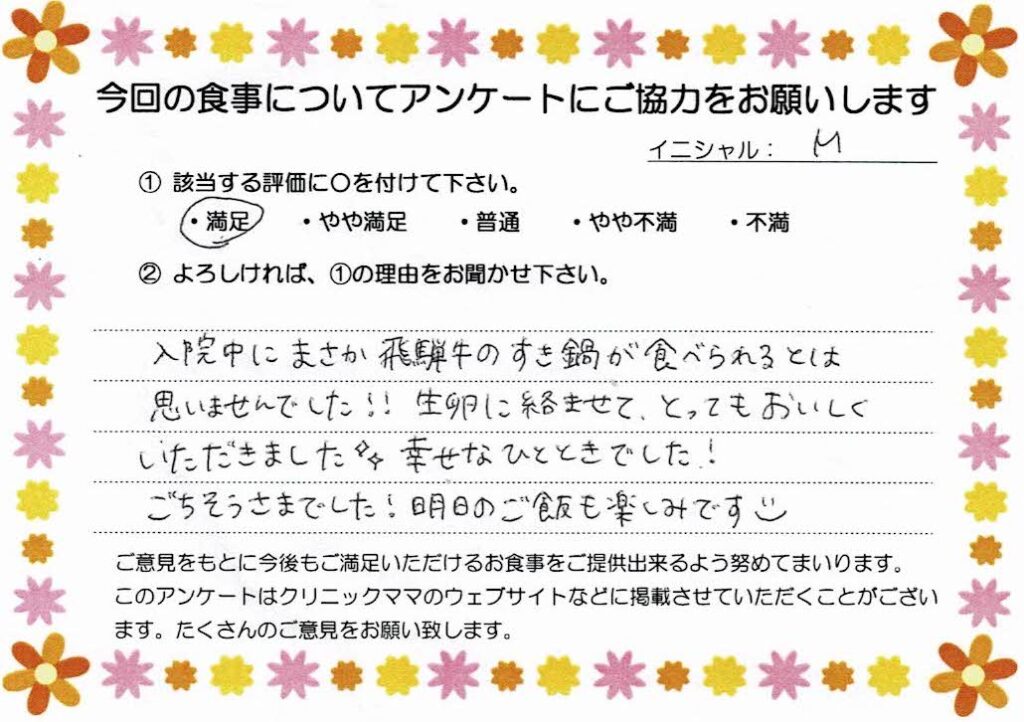 今回の食事についてアンケートにご協力をお願いします
イニシャル： M
① 該当する評価に〇を付けて下さい。
・満足 ・やや満足 ・普通 ・やや不満 ・不満
② よろしければ、①の理由をお聞かせ下さい。
入院中にまさか飛騨牛のすき鍋が食べられるとは
思いませんでした!! 生卵に絡ませて、とってもおいしく
いただきました✨ 幸せなひとときでした!
ごちそうさまでした! 明日のご飯も楽しみです☺
ご意見をもとに今後もご満足いただけるお食事をご提供出来るよう努めてまいります。
このアンケートはクリニックママのウェブサイトなどに掲載させていただくことがござい
ます。たくさんのご意見をお願い致します。